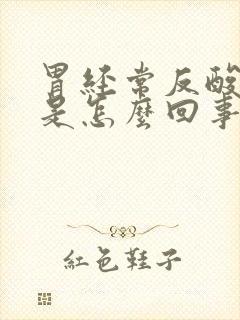 胃經常反酸
是怎麼回事
紅色鞋子